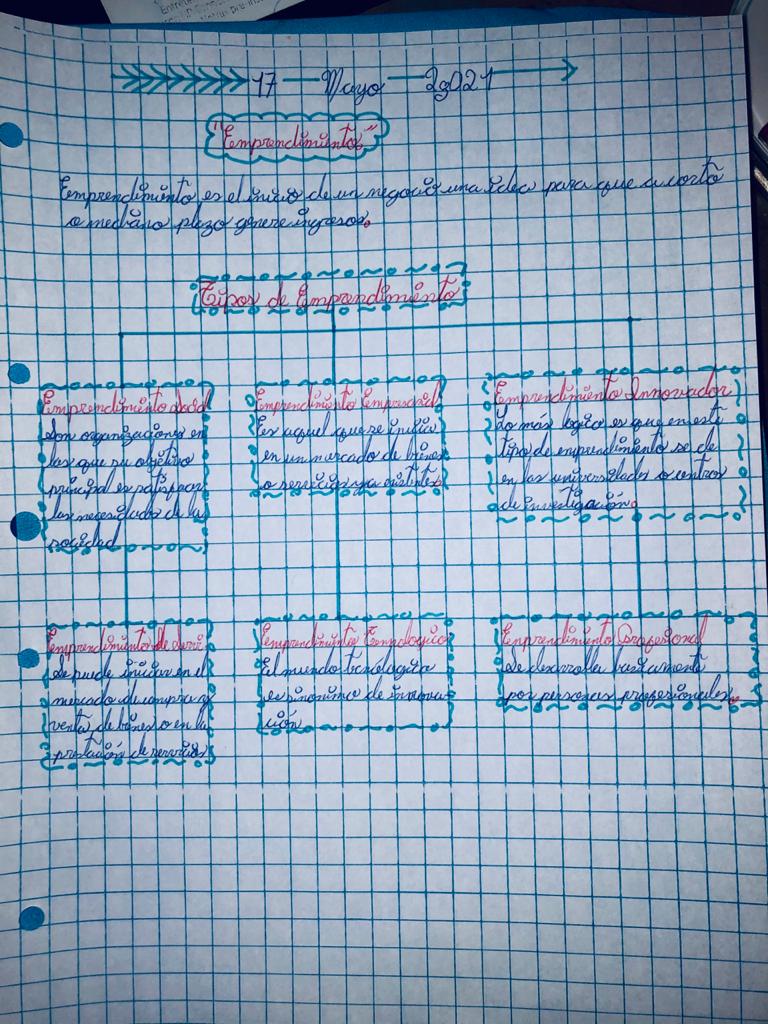 17 — Mayo — 2021
"Emprendimiento"
Emprendimiento es el inicio de un negocio una idea para que a corto
o mediano plazo genere ingresos.
Tipos de Emprendimiento
Emprendimiento Social
Son organizaciones en
las que su objetivo
principal es satisfacer
las necesidades de la
sociedad
Emprendimiento
Es aquel que se inicia
en un mercado de bienes
o servicios ya existentes.
Emprendimiento Innovador
Lo más logico es que en este
tipo de emprendimiento se de
en las universidades o centros
de investigación.
Emprendimiento de Servi
Se puede iniciar en el
mercado de compra y
venta de bienes o en la
prestación de servicios
Emprendimiento
El mundo
es sinonimo de innova
ción
Emprendimiento Profesional
Se desarrolla basicamente
por personas profesionales.